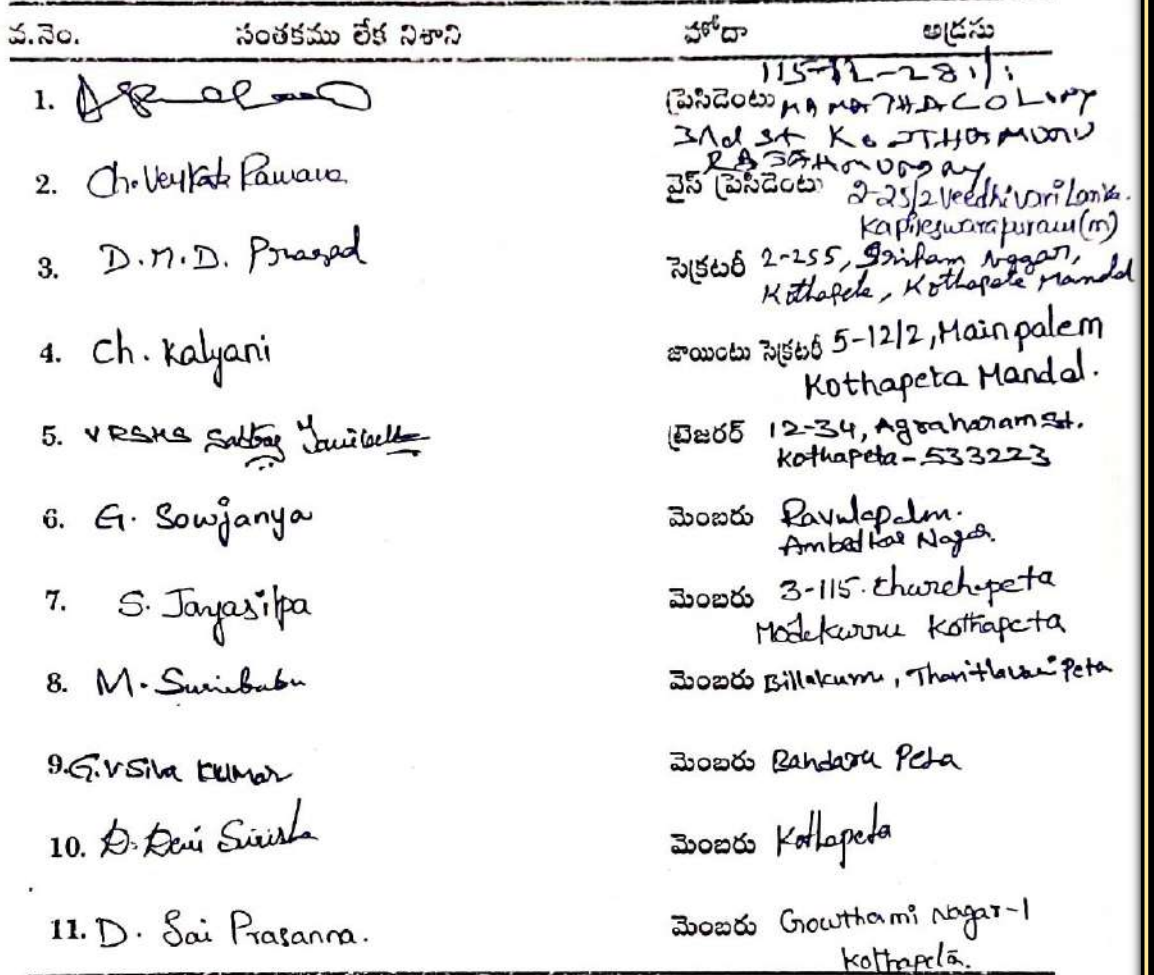 వ.నెం. సంతకము లేక నిశాని హోదా అడ్రసు
1. ప్రెసిడెంటు 115-12-281/1
COLONY
3rd st
2. Ch. Venkata Ramana వైస్ ప్రెసిడెంటు 2-25/2 Veedhivari Lanka.
Kapileswarapuram (m)
3. D.M.D. Prasad సెక్రటరీ 2-255, Sriram Naggar,
Kothapeta, Kothapeta Mandal
4. Ch. Kalyani జాయింటు సెక్రటరీ 5-12/2, Main palem
Kothapeta Mandal.
5. VRSHS ట్రెజరర్ 12-34, Agraharam St.
Kothapeta - 533223
6. G. Sowjanya మెంబరు Ravulapalem.
Ambedkar Nagar.
7. S. Jayasilpa మెంబరు 3-115. Churchpeta
Modekurru Kothapeta
8. M. Suribabu మెంబరు Billakurru, Peta
9. G.V Siva Kumar మెంబరు Bandaru Peta
10. D. Devi Sirisha మెంబరు Kothapeta
11. D. Sai Prasanna. మెంబరు Gowthami Nagar-1
Kothapeta.